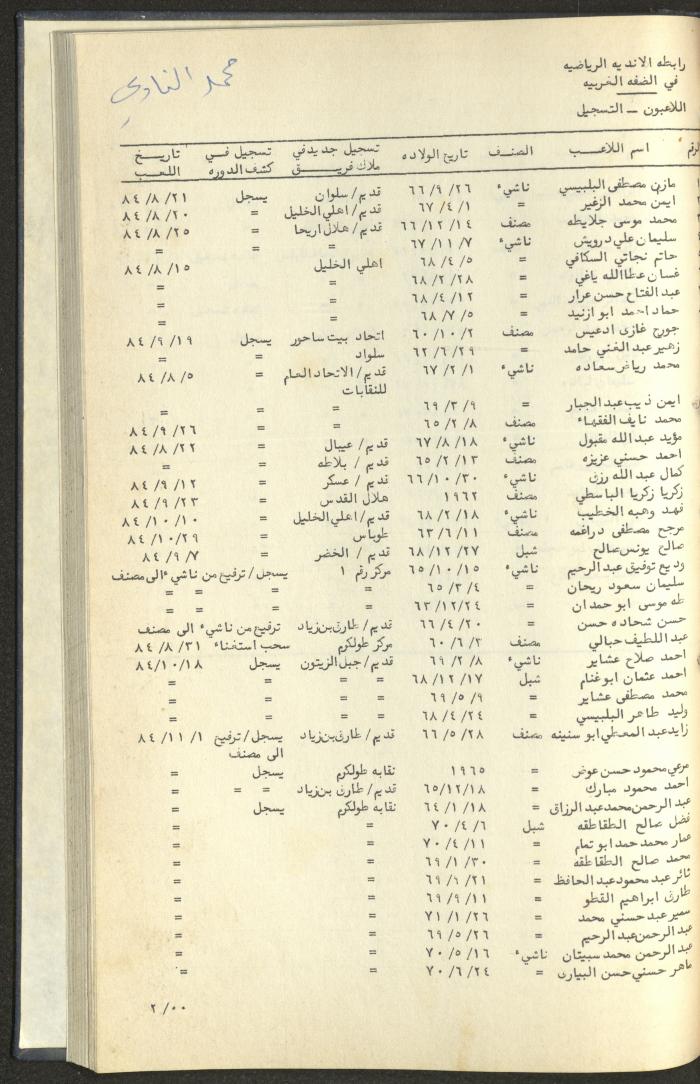 رابطه الانديه الرياضيه
في الضفه الغربيه
محمد
اللاعبون ــ التسجيل
الرقم اسم اللاعــب الصنف تاريخ الولاده تسجيل جديد في ملاك فريــق تسجيل فــي كشف الدوره تاريــخ اللعــب
مازن مصطفى البلبيسي ناشيء ٢٦/ ٩/ ٦٦ قديم/ سلوان يسجل ٢١/ ٨/ ٨٤
ايمن محمد الزغير = ١/ ٤/ ٦٧ قديم/ اهلي الخليل = ٢٠/ ٨/ ٨٤
محمد موسى جلايطه مصنف ١٤/ ١٢/ ٦٦ قديم/ هلال اريحا = ٢٥/ ٨/ ٨٤
سليمان علي درويش ناشيء ٧/ ١١/ ٦٧ = = =
حاتم نجاتي السكافي = ٥/ ٤/ ٦٨ اهلي الخليل ١٥/ ٨/ ٨٤
غسان عطاالله ياغي = ٢٨/ ٢/ ٦٨ = =
عبد الفتاح حسن عرار = ١٢/ ٤/ ٦٨ = =
حماد احمد ابو ازنيد = ٥/ ٧/ ٦٨ = =
جورج غازي ادعيس مصنف ٢/ ١٠/ ٦٠ اتحاد بيت ساحور يسجل ١٩/ ٩/ ٨٤
زهير عبد الغني حامد = ٢٩/ ٦/ ٦٢ سلواد = =
محمد رياض سعاده ناشيء ١/ ٢/ ٦٧ قديم/ الاتحاد العام = ٥/ ٨/ ٨٤
للنقابات
ايمن ذيب عبد الجبار = ٩/ ٣/ ٦٩ = = =
محمد نايف الفقهاء مصنف ٨/ ٢/ ٦٥ = = ٢٦/ ٩/ ٨٤
مؤيد عبد الله مقبول ناشيء ١٨/ ٨/ ٦٧ قديم/ عيبال = ٢٢/ ٨/ ٨٤
احمد حسني عزيزه مصنف ١٣/ ٢/ ٦٥ قديم / بلاطه = =
كمال عبد الله رزق ناشيء ٣٠/ ١٠/ ٦٦ قديم / عسكر = ١٢/ ٩/ ٨٤
زكريا زكريا الباسطي مصنف ١٩٦٢ هلال القدس = ٢٣/ ٩/ ٨٤
فهد وهبه الخطيب ناشيء ١٨/ ٢/ ٦٨ قديم/ اهلي الخليل = ١٠/ ١٠/ ٨٤
مرجح مصطفى دراغمه مصنف ١١/ ٦/ ٦٣ طوباس = ٢٩/ ١٠/ ٨٤
صالح يونس صالح شبل ٢٧/ ١٢/ ٦٨ قديم / الخضر = ٧/ ٩/ ٨٤
وديع توفيق عبد الرحيم ناشيء ١٥/ ١٠/ ٦٥ مركز رقم ١ يسجل/ ترفيع من ناشيء الى مصنف
سليمان سعود ريحان = ٤/ ٣/ ٦٥ = = = =
طه موسى ابو حمدان = ٢٤/ ١٢/ ٦٣ = = = =
حسن شحاده حسن = ٢٠/ ٤/ ٦٦ قديم/ طارق بن زياد ترفيع من ناشيء الى مصنف
عبد اللطيف حبالي مصنف ٣/ ٦/ ٦٠ مركز طولكرم سحب استغناء ٣١/ ٨/ ٨٤
احمد صلاح عشاير ناشيء ٨/ ٢/ ٦٩ قديم/ جبل الزيتون يسجل ١٨/ ١٠/ ٨٤
احمد عثمان ابو غنام شبل ١٧/ ١٢/ ٦٨ = = = =
محمد مصطفى عشاير = ٩/ ٥/ ٦٩ = = = =
وليد طاهر البلبيسي = ٢٤/ ٤/ ٦٨ = = = =
زايد عبد المعطي ابو سنينه مصنف ٢٨/ ٥/ ٦٦ قديم/ طارق بن زياد يسجل/ ترفيع ١/ ١١/ ٨٤
الى مصنف
مرعي محمود حسن عوض = ١٩٦٥ نقابه طولكرم يسجل =
احمد محمود مبارك = ١٨/ ١٢/ ٦٥ قديم/ طارق بن زياد = = =
عبد الرحمن محمد عبد الرزاق = ١٨/ ١/ ٦٤ نقابه طولكرم يسجل =
فضل صالح الطقاطقه شبل ٦/ ٤/ ٧٠ = =
عمار محمد حمد ابو تمام = ١١/ ٤/ ٧٠ = =
محمد صالح الطقاطقه = ٣٠/ ١/ ٦٩ = =
ثائر عبد محمود عبد الحافظ = ٦٩ = =
طارق ابراهيم القطو = ١١/ ٩/ ٦٩ = =
سمير عبد حسني محمد = ٢٦/ ١/ ٧١ = =
عبد الرحمن عبد الرحيم = ٢٦/ ٥/ ٦٩ = =
عبد الرحمن محمد سبيتان ناشيء ١٦/ ٥/ ٧٠ = =
ماهر حسني حسن البياري = ٢٤/ ٦/ ٧٠ = =
٢/٠٠